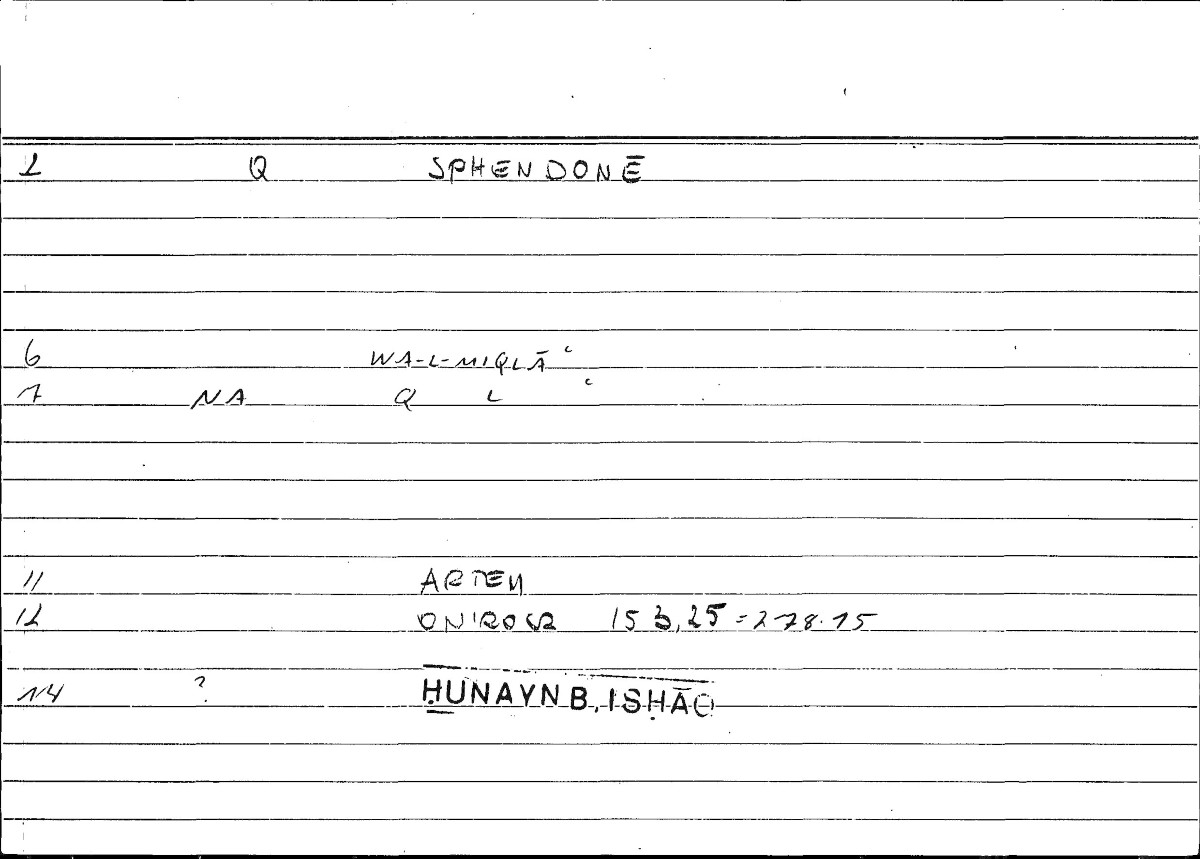 1 Q SPHENDONĒ
6 WA-L-MIQLĀʿ
7 NA Q L ʿ
11 ARTEM
12 ONIROCR 153,25=278.15
14 ? ḤUNAYN B. ISḤĀQ